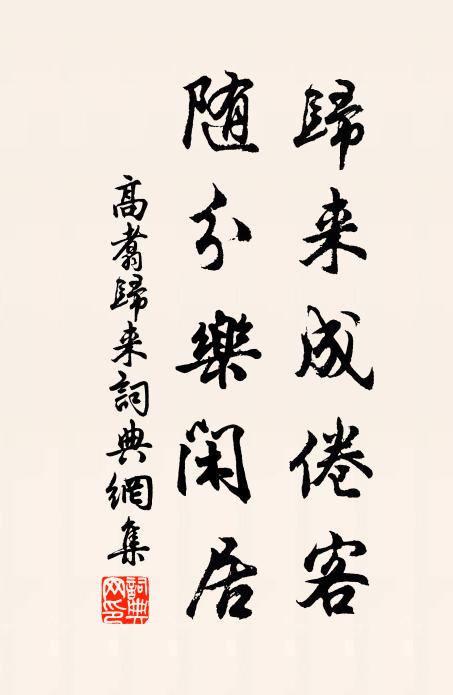 歸来成倦客
随分樂閑居
高翥歸来詞典網集
詞典网印